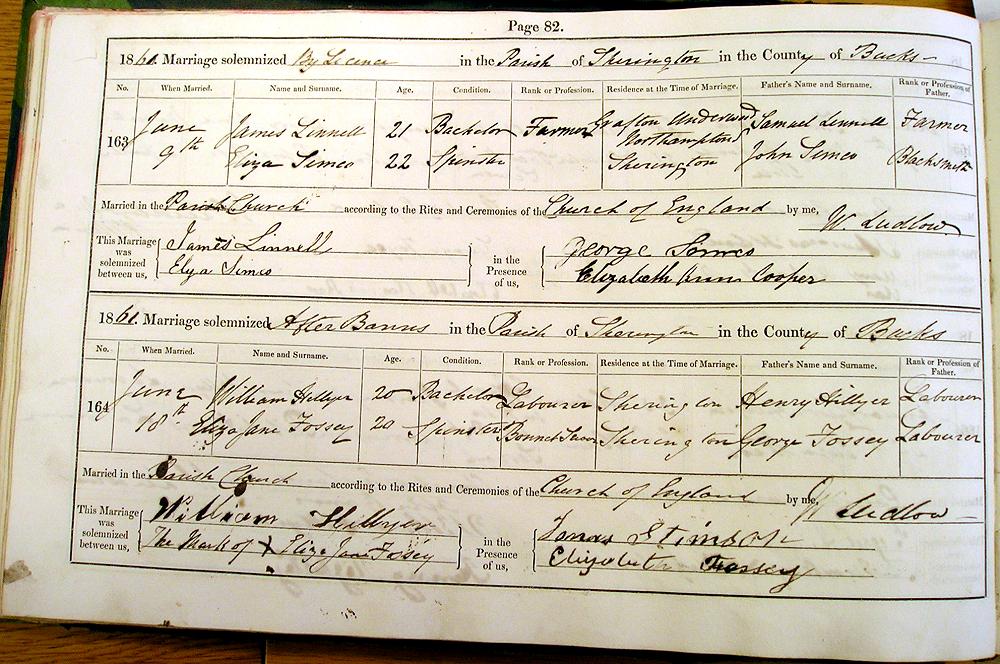 Page 82.
1861. Marriage solemnized By Licence in the Parish of Sherington in the County of Bucks
No. When Married. Name and Surname. Age. Condition. Rank or Profession. Residence at the Time of Marriage. Father's Name and Surname. Rank or Profession of Father.
163 June 9th James Linnell 21 Bachelor Farmer Grafton Underwood Northampton Samuel Linnell Farmer
Eliza Simco 22 Spinster Sherington John Simco Blacksmith
Married in the Parish Church according to the Rites and Ceremonies of the Church of England by me, W. Ludlow
This Marriage was solemnized between us, James Linnell in the Presence of us, George Simco
Eliza Simco Elizabeth Ann Cooper
1861. Marriage solemnized After Banns in the Parish of Sherington in the County of Bucks
No. When Married. Name and Surname. Age. Condition. Rank or Profession. Residence at the Time of Marriage. Father's Name and Surname. Rank or Profession of Father.
164 June 18th William Hillyer 20 Bachelor Labourer Sherington Henry Hillyer Labourer
Eliza Jane Fossey 20 Spinster Bonnet Sherington George Fossey Labourer
Married in the Parish Church according to the Rites and Ceremonies of the Church of England by me, W Ludlow
This Marriage was solemnized between us, William Hillyer in the Presence of us,
The Mark of X Eliza Jane Fossey Elizabeth Fossey